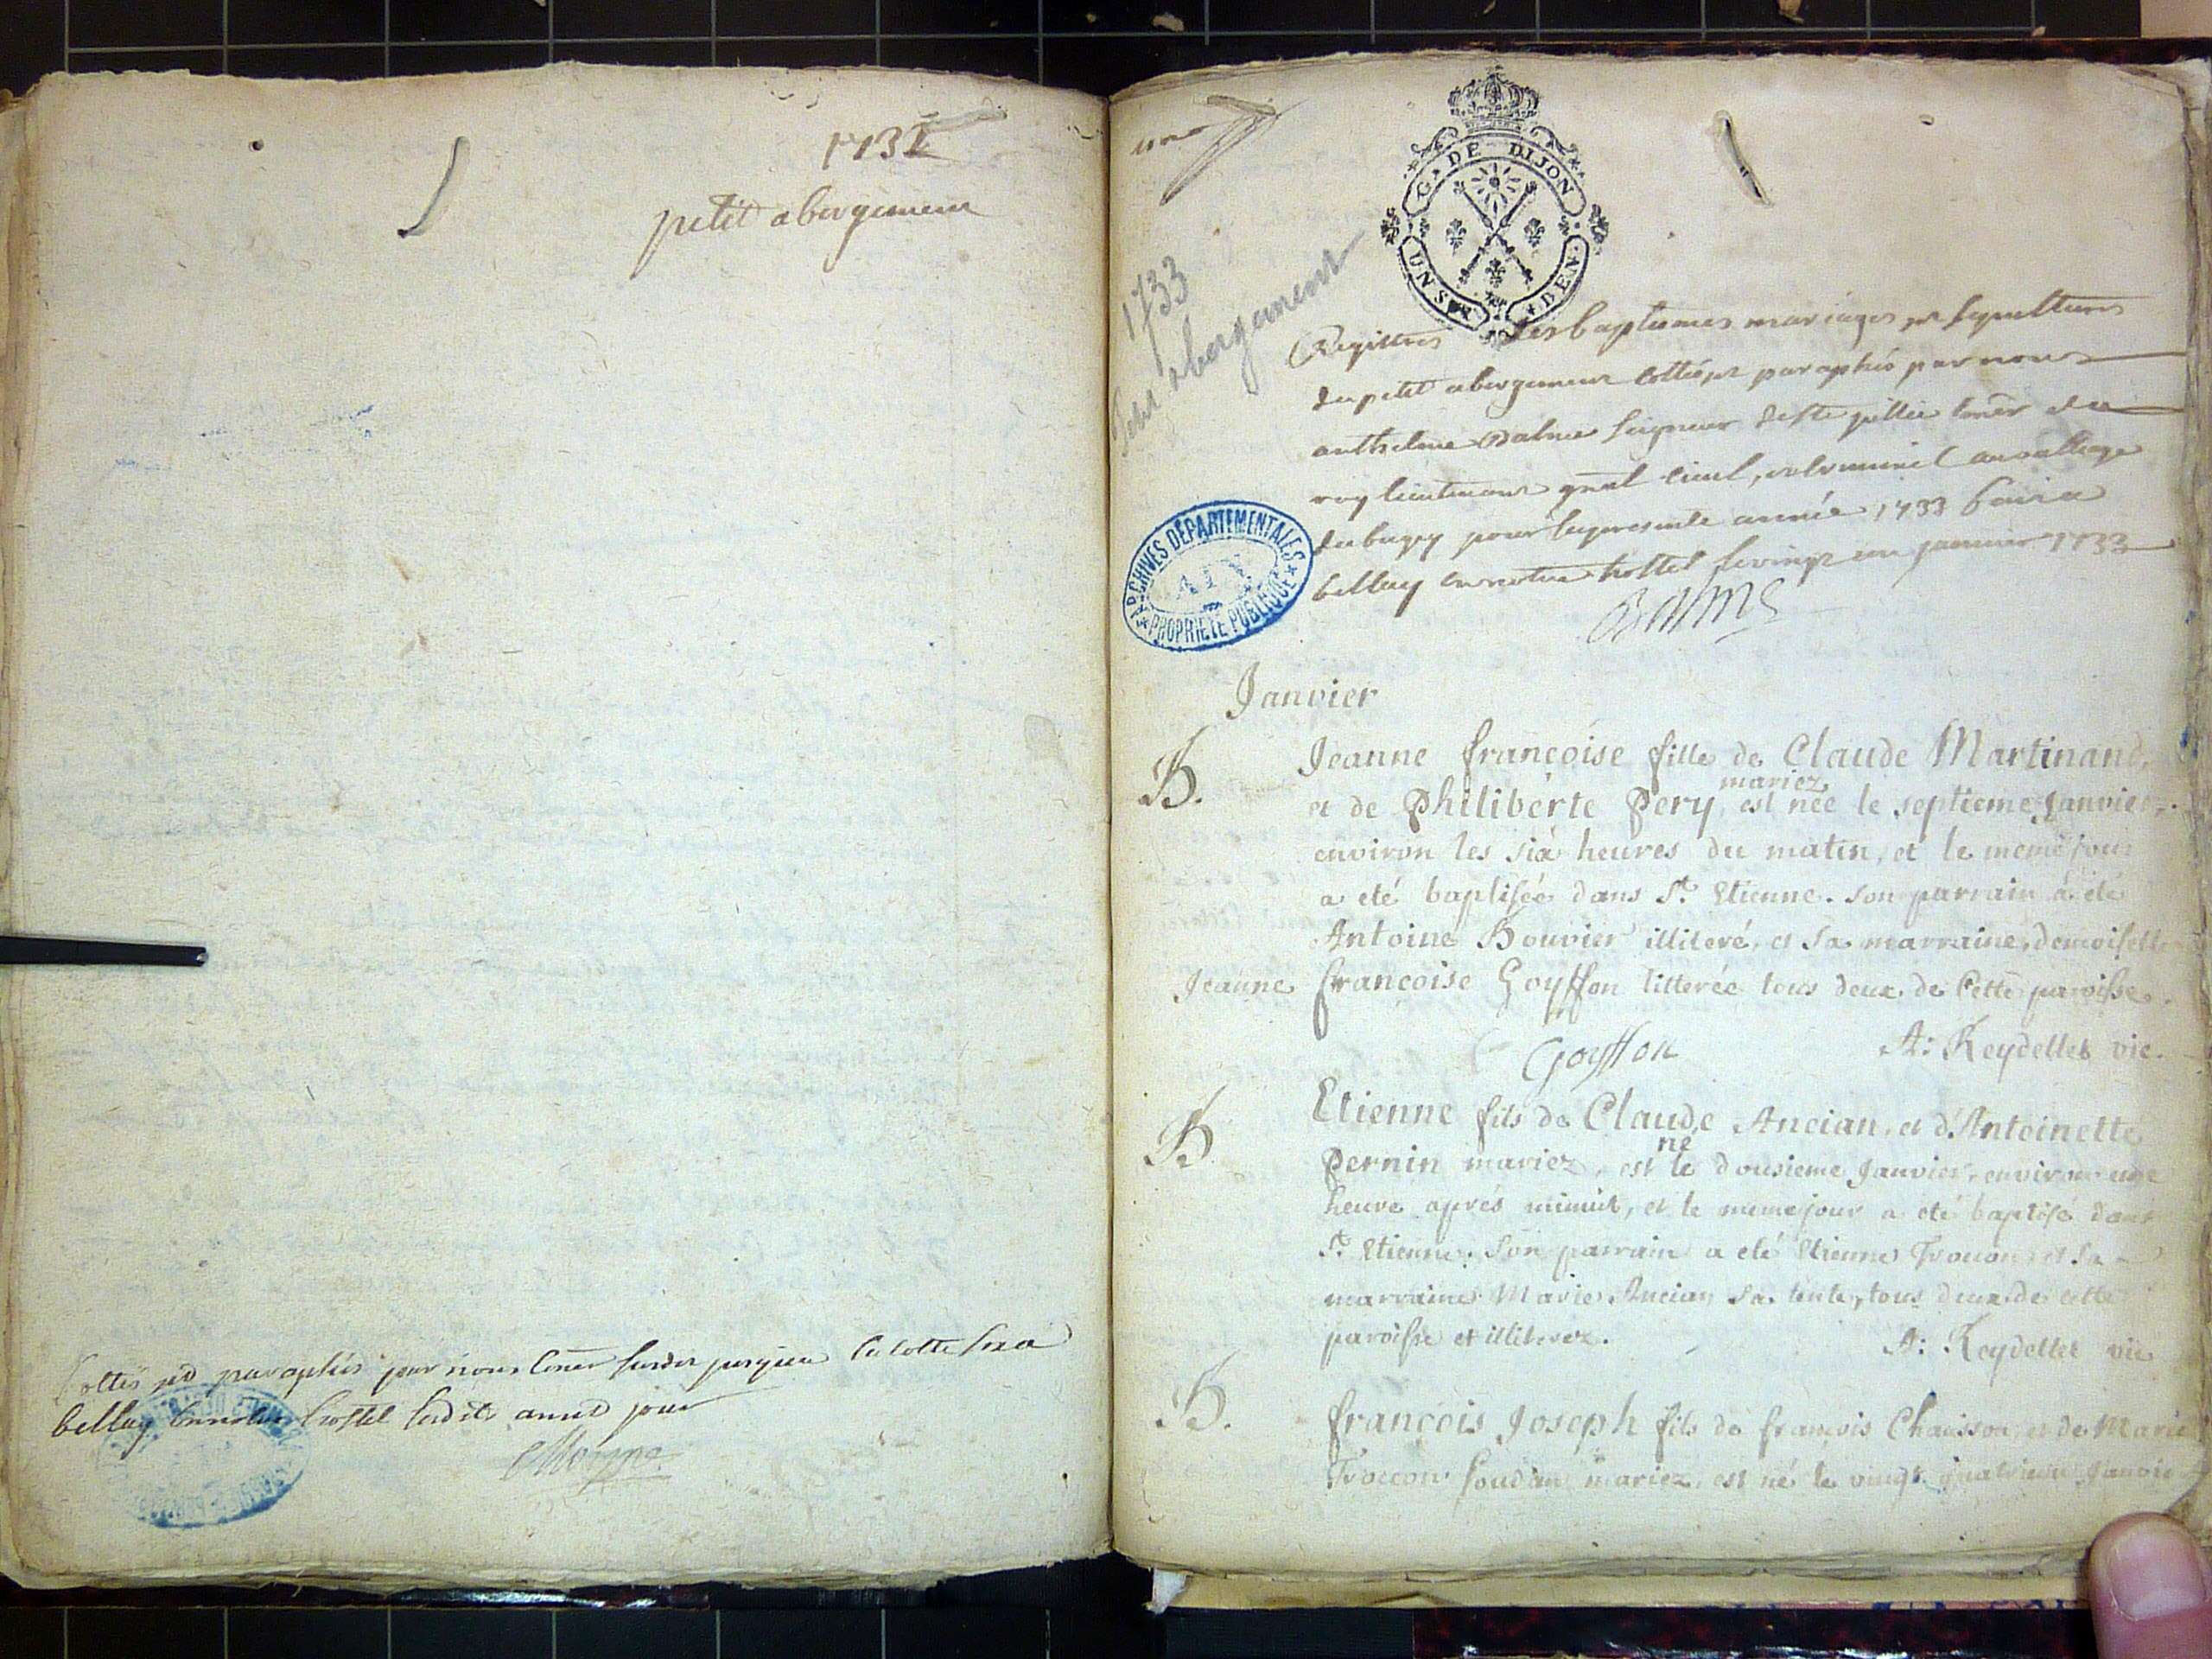 petit abergement
Cottés et paraphés par nous
bellay
une
G. DE DIJON
UN S.
DEN.
1733
Petit abergement
Registres des baptesmes mariages et sepultures
du petit abergement cottés et paraphés par nous
anthelme Balme seigneur de Ste jullie conër du
roy lieutenant gnal civil, et criminel au balliage
du bugey pour la presente année 1733 fait a
bellay en notre hostel le vingt un janvier 1733
Balme
ARCHIVES DÉPARTEMENTALES
AIN
PROPRIÉTÉ PUBLIQUE
Janvier
B. Jeanne françoise fille de Claude Martinand,
et de Philiberte Pery mariez, est née le septieme Janvier,
environ les six heures du matin, et le meme jour
a eté baptisée dans St. Etienne. son parrain a eté
Antoine Bouvier illiteré, et sa marraine, demoiselle
Jeanne françoise Goyffon litterée tous deux de cette paroisse.
Goyffon
A: Reydellet vic.
B Etienne fils de Claude Ancian, et d'Antoinette
Pernin mariez, est né le dousieme Janvier, environ une
heure aprés minuit, et le meme jour a eté baptisé dans
St Etienne. Son parrain a eté Etienne Troccon et sa
marraine Marie Ancian sa tante, tous deux de cette
paroisse et illiterez.
A: Reydellet vic
B. françois Joseph fils de françois Chaisson, et de Marie
Troccon mariez, est né le vingt quatrieme Janvier